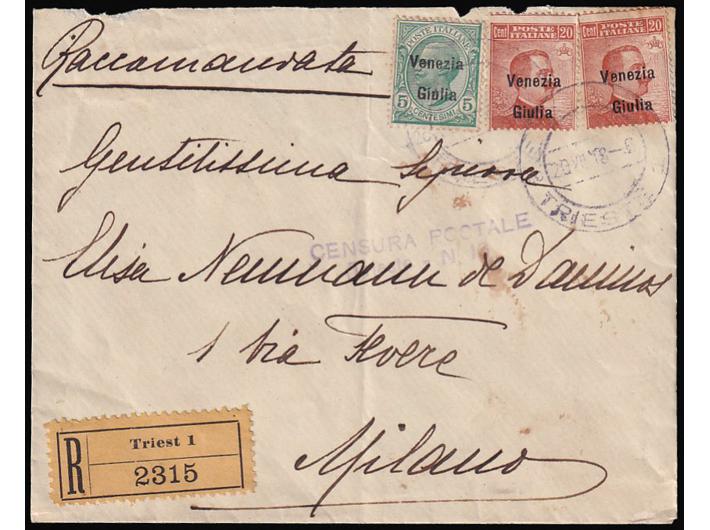 Raccomandata
POSTE ITALIANE
Venezia
Giulia
5 5
CENTESIMI
Cent POSTE ITALIANE 20
Venezia
Giulia
Cent POSTE ITALIANE 20
Venezia
Giulia
TRIESTE
Gentilissima Signora
CENSURA POSTALE
N. 1
Elisa Neumann de
1 via
Milano
R
Triest 1
2315